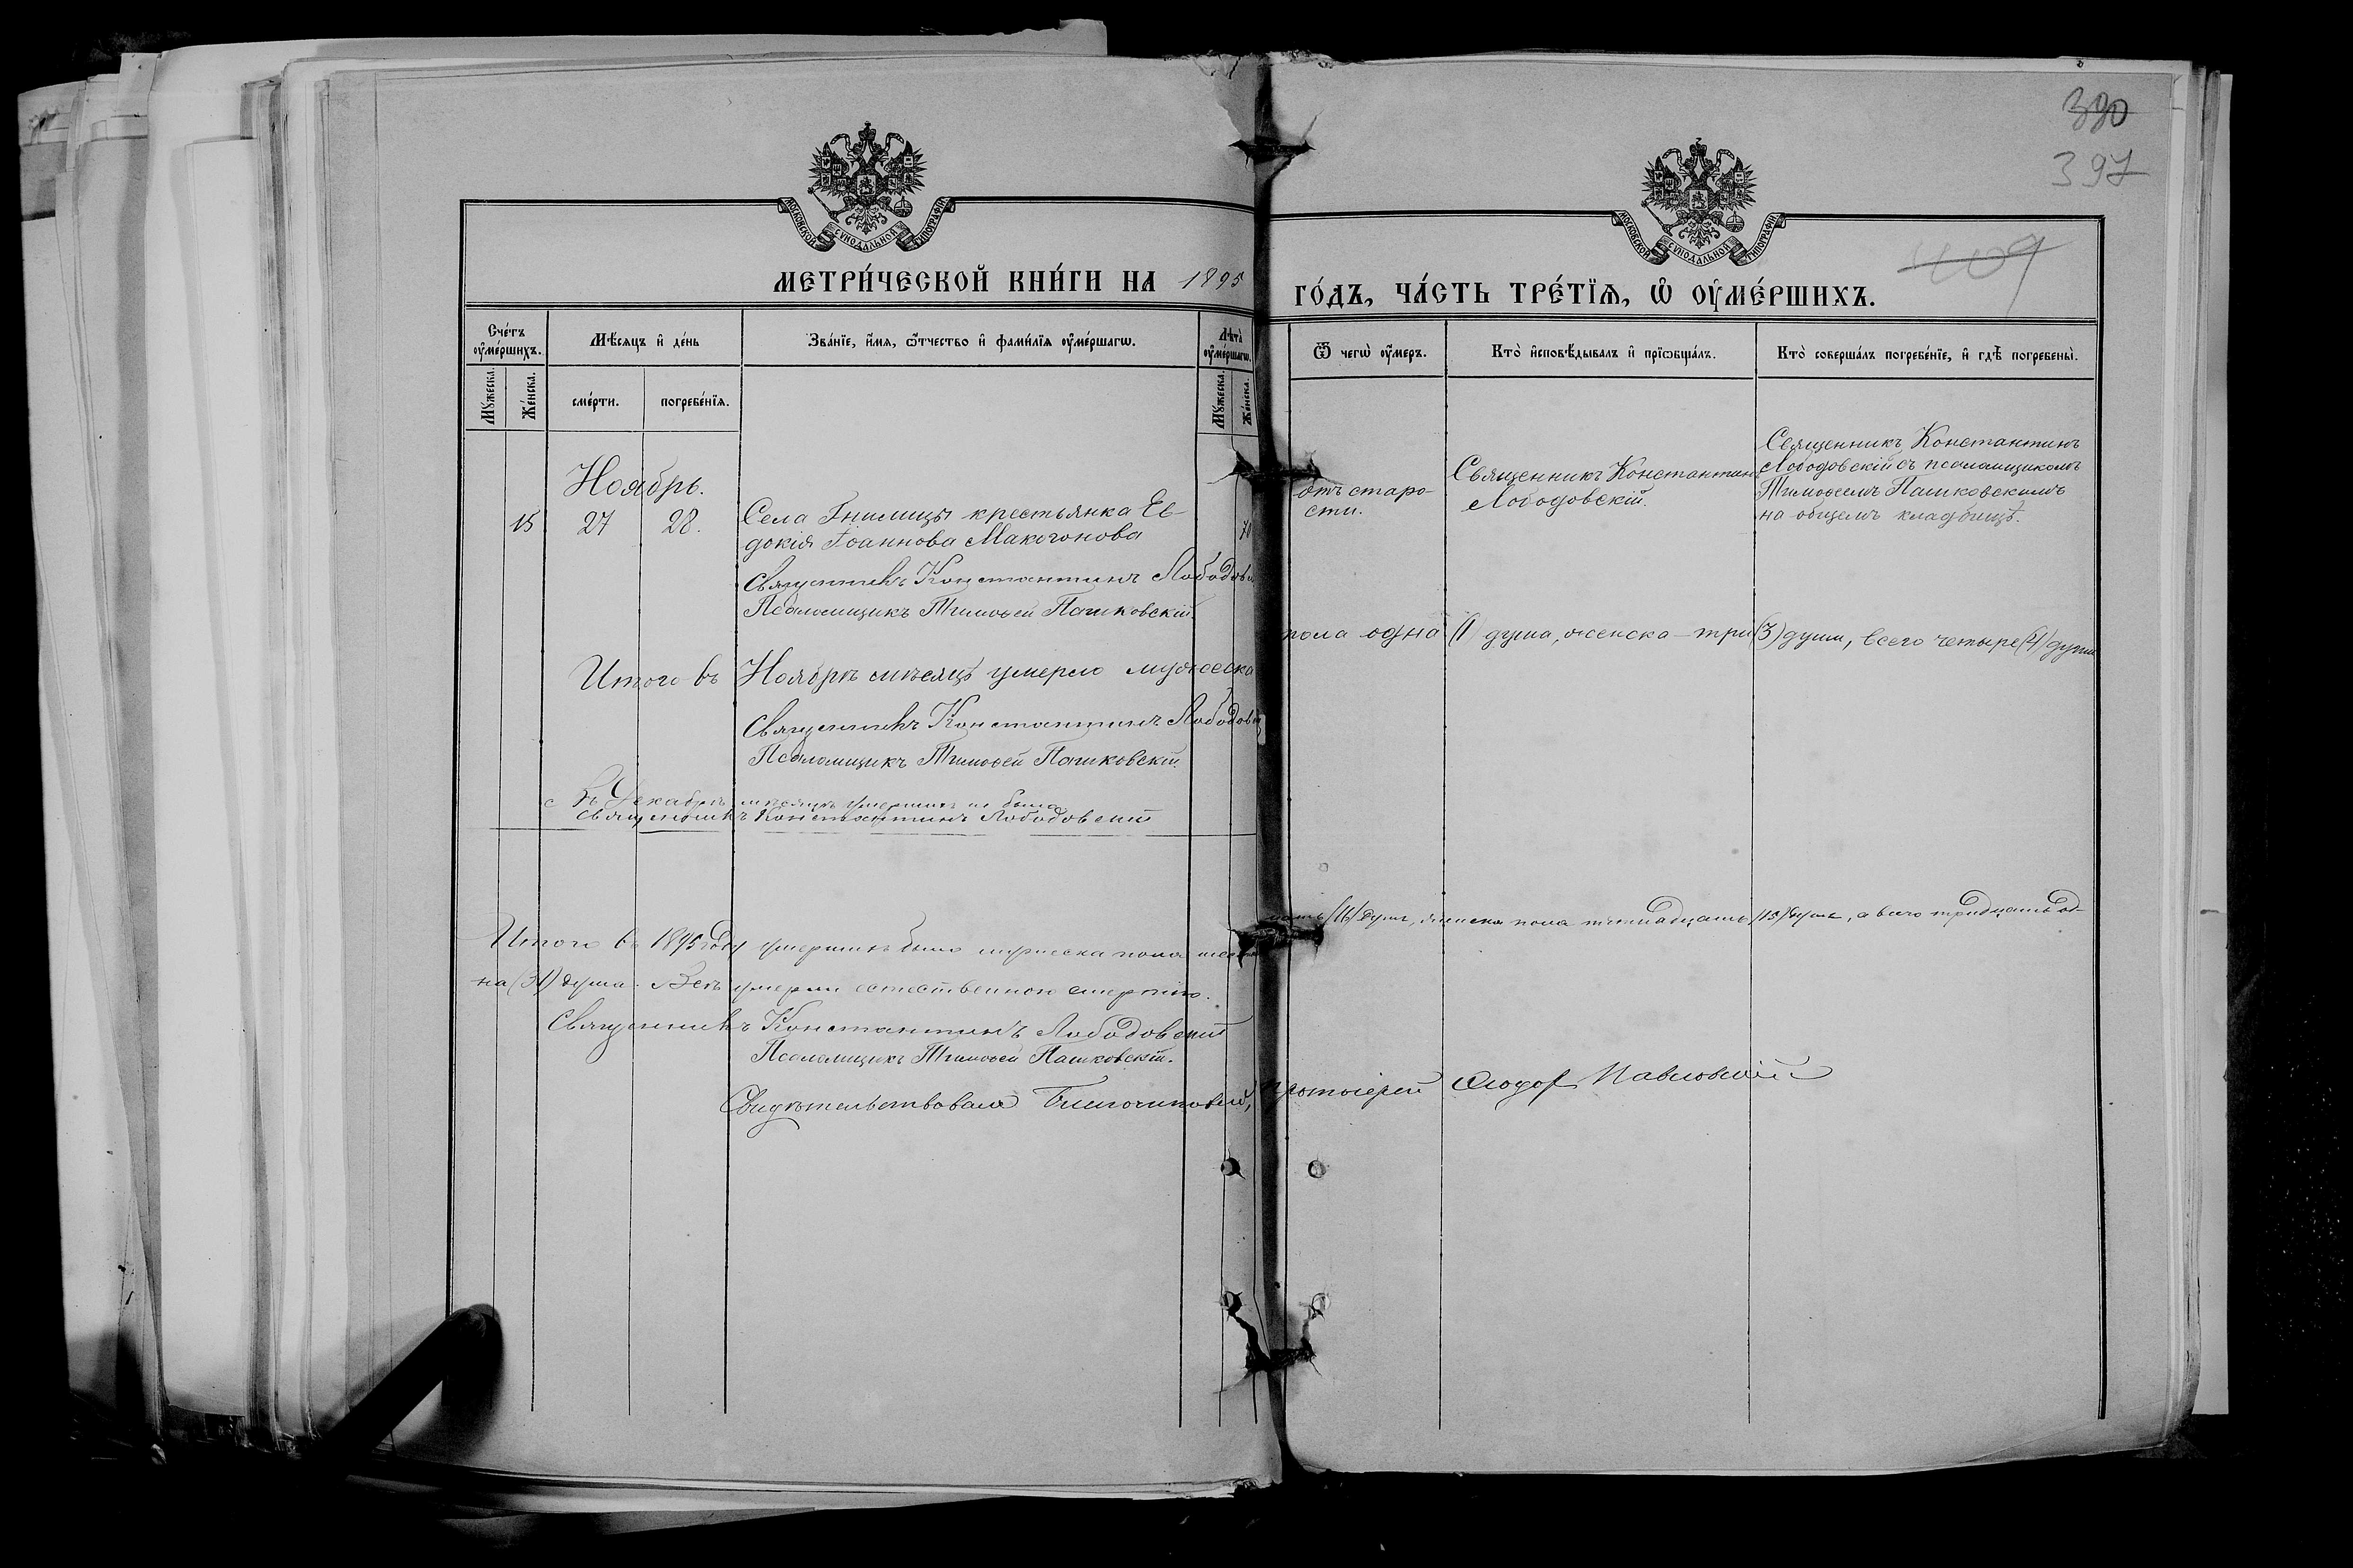 390
397
409
МОСКОВСКОЙ СУНОДАЛЬНОЙ ТИПОГРАФІИ
МОСКОВСКОЙ СУНОДАЛЬНОЙ ТИПОГРАФІИ
МЕТРИ́ЧЕСКОЙ КНИ́ГИ НА 1895 ГО́ДЪ, ЧА́СТЬ ТРЕ́ТЇѦ, Ѡ҆ ОУ҆МЕ́РШИХЪ.
Сче́тъ оу҆ме́ршихъ.
Мѣ́сяцъ и҆ де́нь
Зва́нїе, и҆́мя, ѻ҆́тчество и҆ фами́лїя оу҆ме́ршагѡ.
Лѣ́та оу҆ме́ршагѡ.
Ѿ чегѡ̀ оу҆́меръ.
Кто̀ и҆сповѣ́дывалъ и҆ прїѡбща́лъ.
Кто̀ соверша́лъ погребе́нїе, и҆ гдѣ̀ погребены̀.
Мꙋ́жеска.
Же́нска.
сме́рти.
погребе́нїя.
Мꙋ́жеска.
Же́нска.
Ноябрь.
15 27 28.
Села Гнилицы крестьянка Ев-
докія Іоаннова Макогонова
70
отъ старо-
сти.
Священникъ Константинъ
Лободовскій.
Священникъ Константинъ
Лободовскій съ псаломщикомъ
Тимоѳеемъ Пашковскимъ
на общемъ кладбищѣ.
Священникъ Константинъ Лободовскій
Псаломщикъ Тимоѳей Пашковскій.
Итого въ Ноябрѣ мѣсяцѣ умерло мужеска пола одна (1) душа, женска – три (3) души, всего четыре (4) души
Священникъ Константинъ Лободовскій
Псаломщикъ Тимоѳей Пашковскій.
Въ Декабрѣ мѣсяцѣ умершихъ не было
Священникъ Константинъ Лободовскій
Итого въ 1895 году умершихъ было мужеска пола шестнадцать (16) душъ, женска пола пятнадцать (15) душъ, а всего тридцать од-
на (31) душа. Всѣ умерли естественною смертію.
Священникъ Константинъ Лободовскій
Псаломщикъ Тимоѳей Пашковскій.
Свидѣтельствовалъ Благочинный, Протоіерей Ѳеодоръ Павловскій